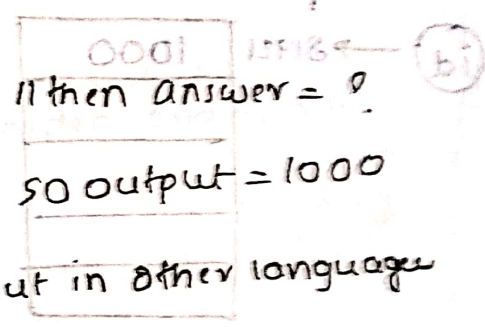 then answer = ?
so output = 1000
ut in other languages